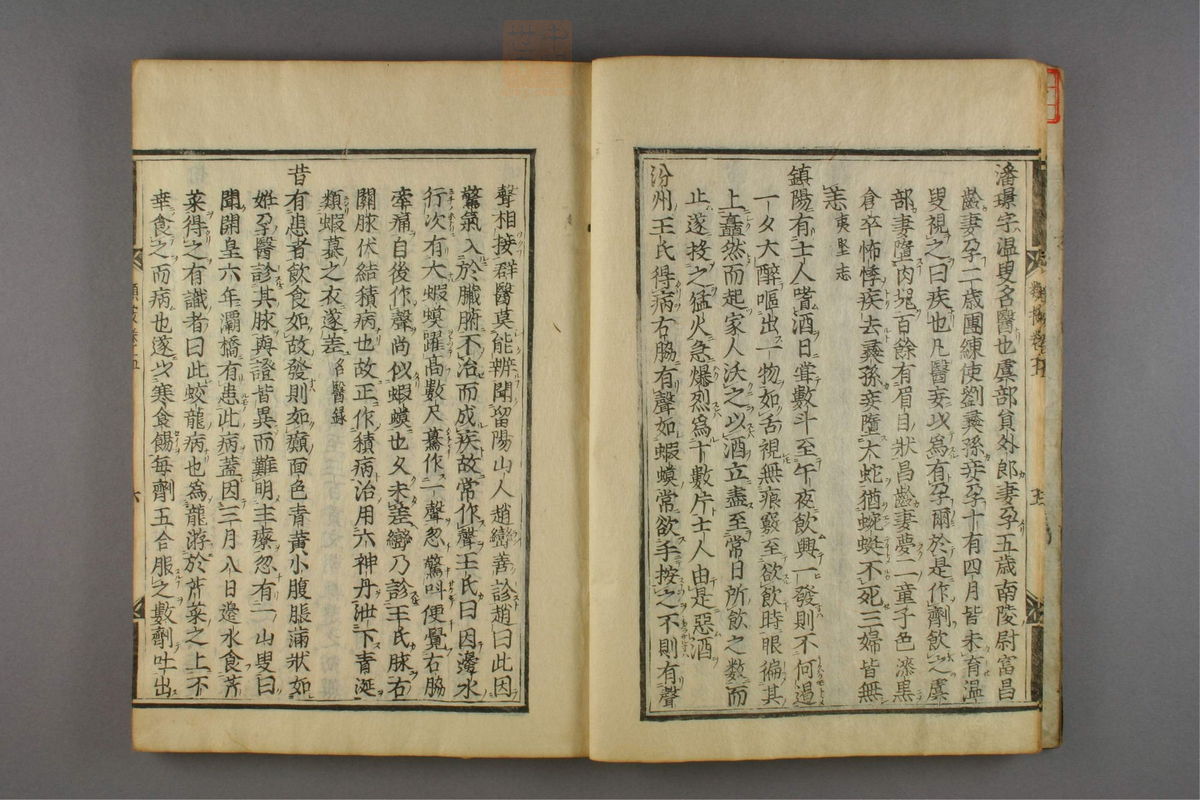 潘璟字溫叟名醫也虞部員外郎妻孕五歲南陵尉富昌
齡妻孕二歲團練使劉彝孫妾孕十有四月皆未育溫
叟視之曰疾也凡醫妄以爲有孕爾於是作劑飲之虞
部妻墮肉塊百餘有眉目狀昌齡妻夢二童子色漆黑
倉卒怖悸疾去彝孫妾墮大蛇猶蜿蜒不死三婦皆無
恙夷堅志
鎮陽有士人嗜酒日嘗數斗至午夜飲興一發則不何過
一夕大醉嘔出一物如舌視無痕竅至欲飲時眼徧其
上矗然而起家人沃之以酒立盡至常日所飲之数而
止遂投之猛火急爆烈爲十數片士人由是惡酒
汾州王氏得病右脇有聲如蝦蟆常欲手按之不則有聲
聲相接群醫莫能辨聞留陽山人趙巒善診趙曰此因
驚氣入於臟腑不治而成疾故常作聲王氏曰因邊水
行次有大蝦蟆躍高數尺驀作一聲忽驚叫便覺右脇
牽痛自後作聲尚似蝦蟆也久未差巒乃診王氏脉右
關脉伏結積病也故正作積病治用六神丹泄下青涎
類蝦蟇之衣遂差名醫錄
昔有患者飲食如故發則如癲面色青黄小腹脹滿狀如
姙孕醫診其脉與證皆異而難明主療忽有一山叟曰
聞開皇六年灞橋有患此病蓋因三月八日邊水食芹
菜得之有識者曰此蛟龍病也爲龍游於芹菜之上不
幸食之而病也遂以寒食餳每劑五合服之數劑吐出